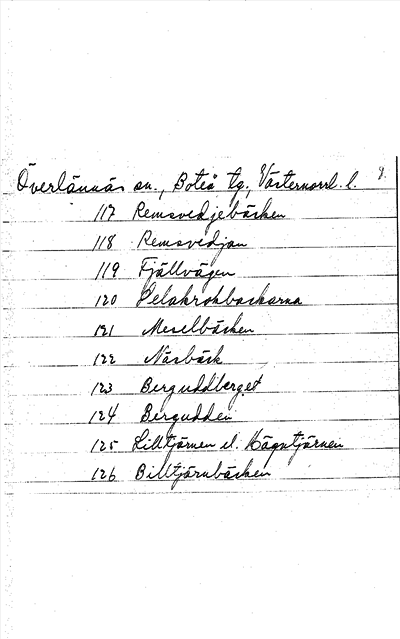 Överlännäs sn., Boteå tg., Västernorrl. l. 8.
117 Remsvedjebäcken
118 Remsvedjan
119 Fjällvägen
120 Pelakrokbackarna
121 Meselbäcken
122 Näsbäck
123 Berguddberget
124 Bergudden
125 Lilltjärnen el. Hägntjärnen
126 Billtjärnbäcken